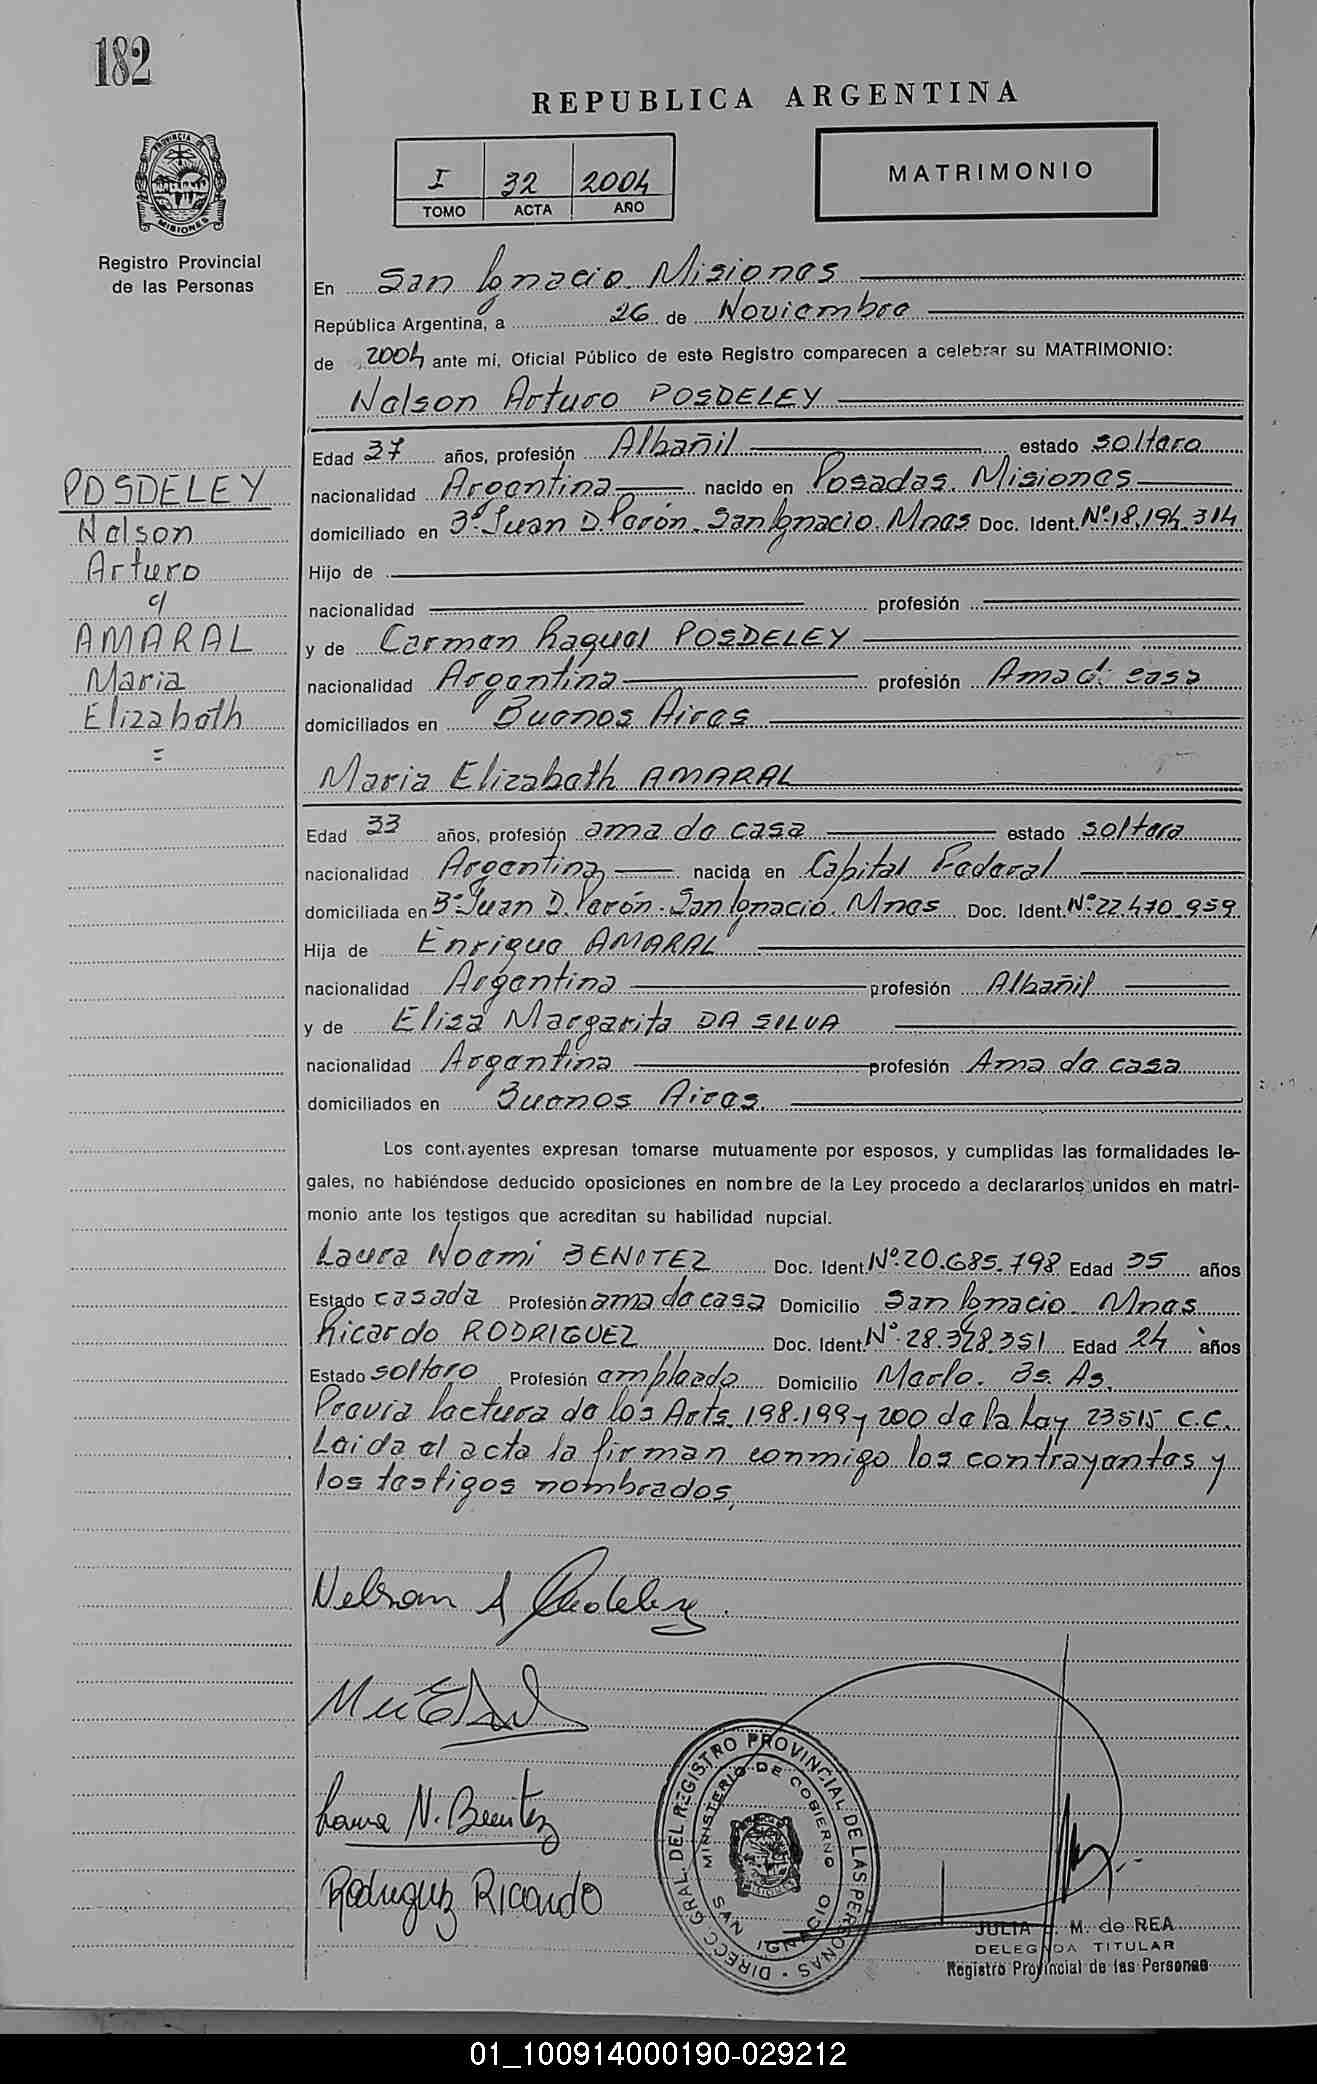 182
REPUBLICA ARGENTINA
PROVINCIA DE
MISIONES
I 32 2004
TOMO ACTA AÑO
MATRIMONIO
Registro Provincial
de las Personas
En San Ignacio. Misiones
República Argentina, a 26 de Noviembre
de 2004 ante mí, Oficial Público de este Registro comparecen a celebrar su MATRIMONIO:
Nelson Arturo POSDELEY
Edad 37 años, profesión Albañil estado soltero
nacionalidad Argentina nacido en Posadas. Misiones
domiciliado en Bº Juan D. Perón. San Ignacio. Mnes Doc. Ident. Nº 18.194.314
Hijo de
nacionalidad profesión
y de Carmen Raquel POSDELEY
nacionalidad Argentina profesión Ama de casa
domiciliados en Buenos Aires
POSDELEY
Nelson
Arturo
c/
AMARAL
Maria
Elizabeth
=
Maria Elizabeth AMARAL
Edad 33 años, profesión ama de casa estado soltera
nacionalidad Argentina nacida en Capital Federal
domiciliada en Bº Juan D. Perón. San Ignacio. Mnes Doc. Ident. Nº 22.470.959
Hija de Enrique AMARAL
nacionalidad Argentina profesión Albañil
y de Elisa Margarita DA SILVA
nacionalidad Argentina profesión Ama de casa
domiciliados en Buenos Aires.
Los contrayentes expresan tomarse mutuamente por esposos, y cumplidas las formalidades le-
gales, no habiéndose deducido oposiciones en nombre de la Ley procedo a declararlos unidos en matri-
monio ante los testigos que acreditan su habilidad nupcial.
Laura Noemi BENITEZ Doc. Ident. Nº 20.685.798 Edad 35 años
Estado casada Profesión ama de casa Domicilio San Ignacio. Mnes
Ricardo RODRIGUEZ Doc. Ident. Nº 28.328.351 Edad 24 años
Estado soltero Profesión empleado Domicilio Merlo. Bs. As.
Previa lectura de los Arts. 198.199 y 200 de la Ley 23515 C.C.
Leida el acta la firman conmigo los contrayentes y
los testigos nombrados,
Nelson A Posdeley
Laura N. Benitez
Rodriguez Ricardo
DIRECC. GRAL. DEL REGISTRO PROVINCIAL DE LAS PERSONAS
MINISTERIO DE GOBIERNO
SAN IGNACIO
JULIA M. de REA
DELEGADA TITULAR
Registro Provincial de las Personas
01_100914000190-029212